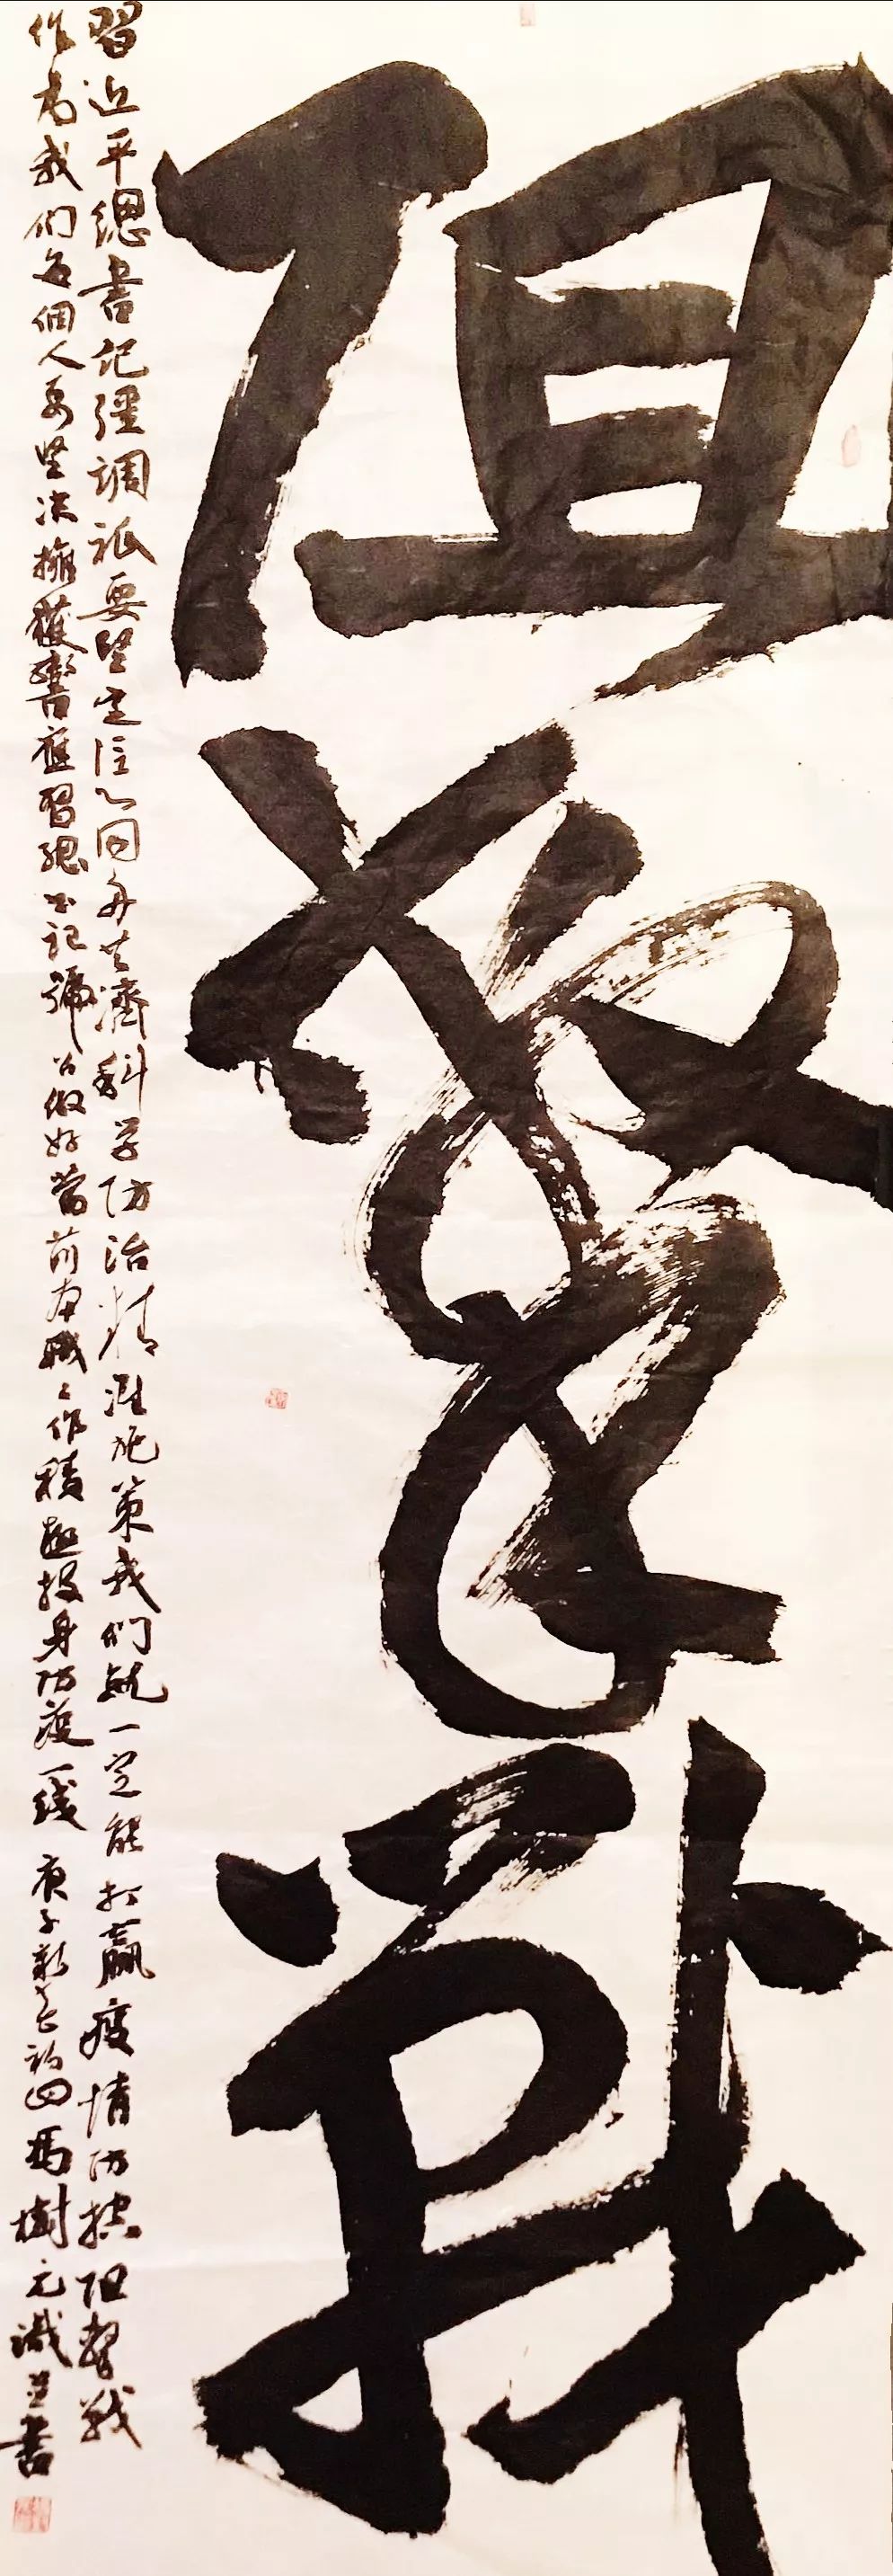 阻擊戰
習近平總書記强調祇要堅定信心同舟共濟科学防治精准施策我们就一定能打贏疫情防控阻擊戰
作为我们每個人要堅决擁護響應習總书記號召做好當前本職工作積極投身防疫一线 庚子新春初四馮樹元識並書